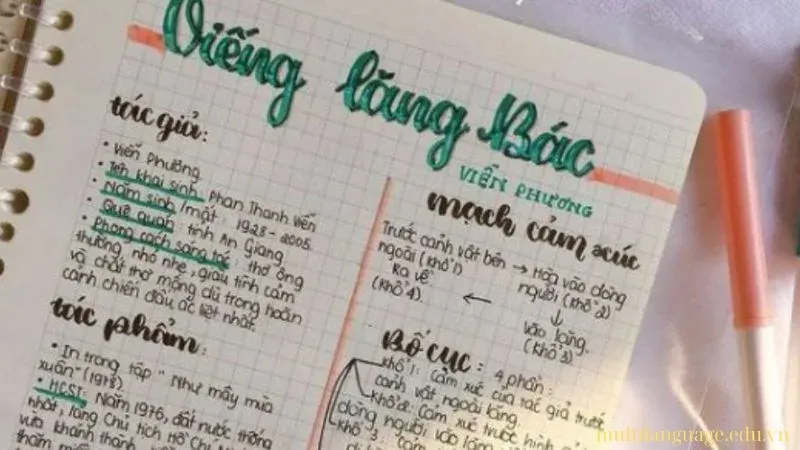 Viếng lăng Bác
VIỄN PHƯƠNG
tác giả:
• Viễn Phương
• Tên khai sinh: Phan Thanh Viễn
• Năm sinh/mất: 1928-2005
• Quê quán: tỉnh An Giang
• Phong cách sáng tác: thơ ông
thường nhỏ nhẹ, giàu tình cảm
và chất thơ mộng dù trong hoàn
cảnh chiến đấu ác liệt nhất.
tác phẩm:
• In trong tập "Như mấy mùa
xuân" (1978)
• HCST: Năm 1976, đất nước thống
nhất, lăng Chủ tịch Hồ Chí
vừa khánh thành
thăm miền
mạch cảm xúc
Trước cảnh vật bên → Hòa vào dòng
ngoài (khổ 1) người (khổ 2)
Ra về ← ↓
(khổ 4). vào lăng.
(khổ 3)
Bố cục: 4 phần:
khổ 1: Cảm xúc của tác giả trước
cảnh vật ngoài lăng.
khổ 2: Cảm xúc trước hình
dòng người vào lăng
khổ 3: Cảm
multilanguage.edu.vn